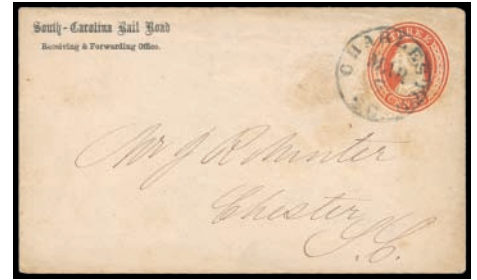 South-Carolina Rail Road
Receiving & Forwarding Office.
THREE
CHARLESTON
S.C.
Mr J R Minter
Chester
S.C.